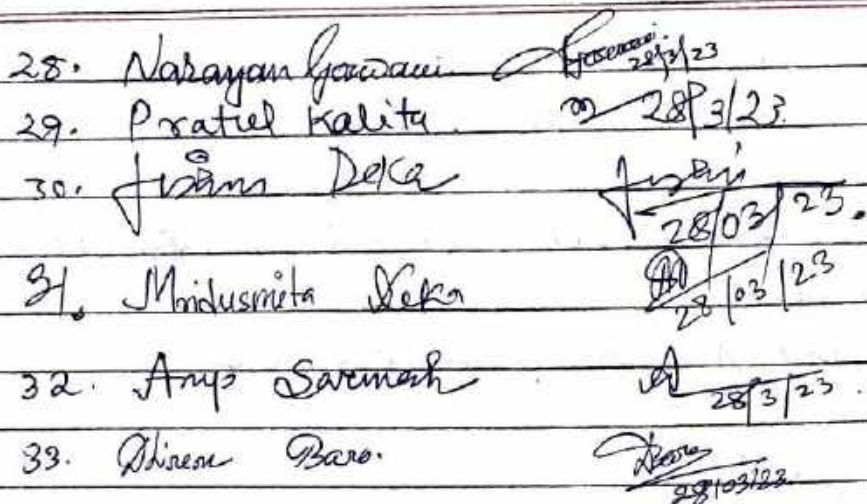 28. Narayan Goswami Goswami 28/3/23
29. Pratul Kalita 28/3/23
30. Deka 28/03/23.
31. Mridusmita Deka 28/03/23
32. Anup Sarmah 28/3/23.
33. Dhiren Baro. 28/03/23